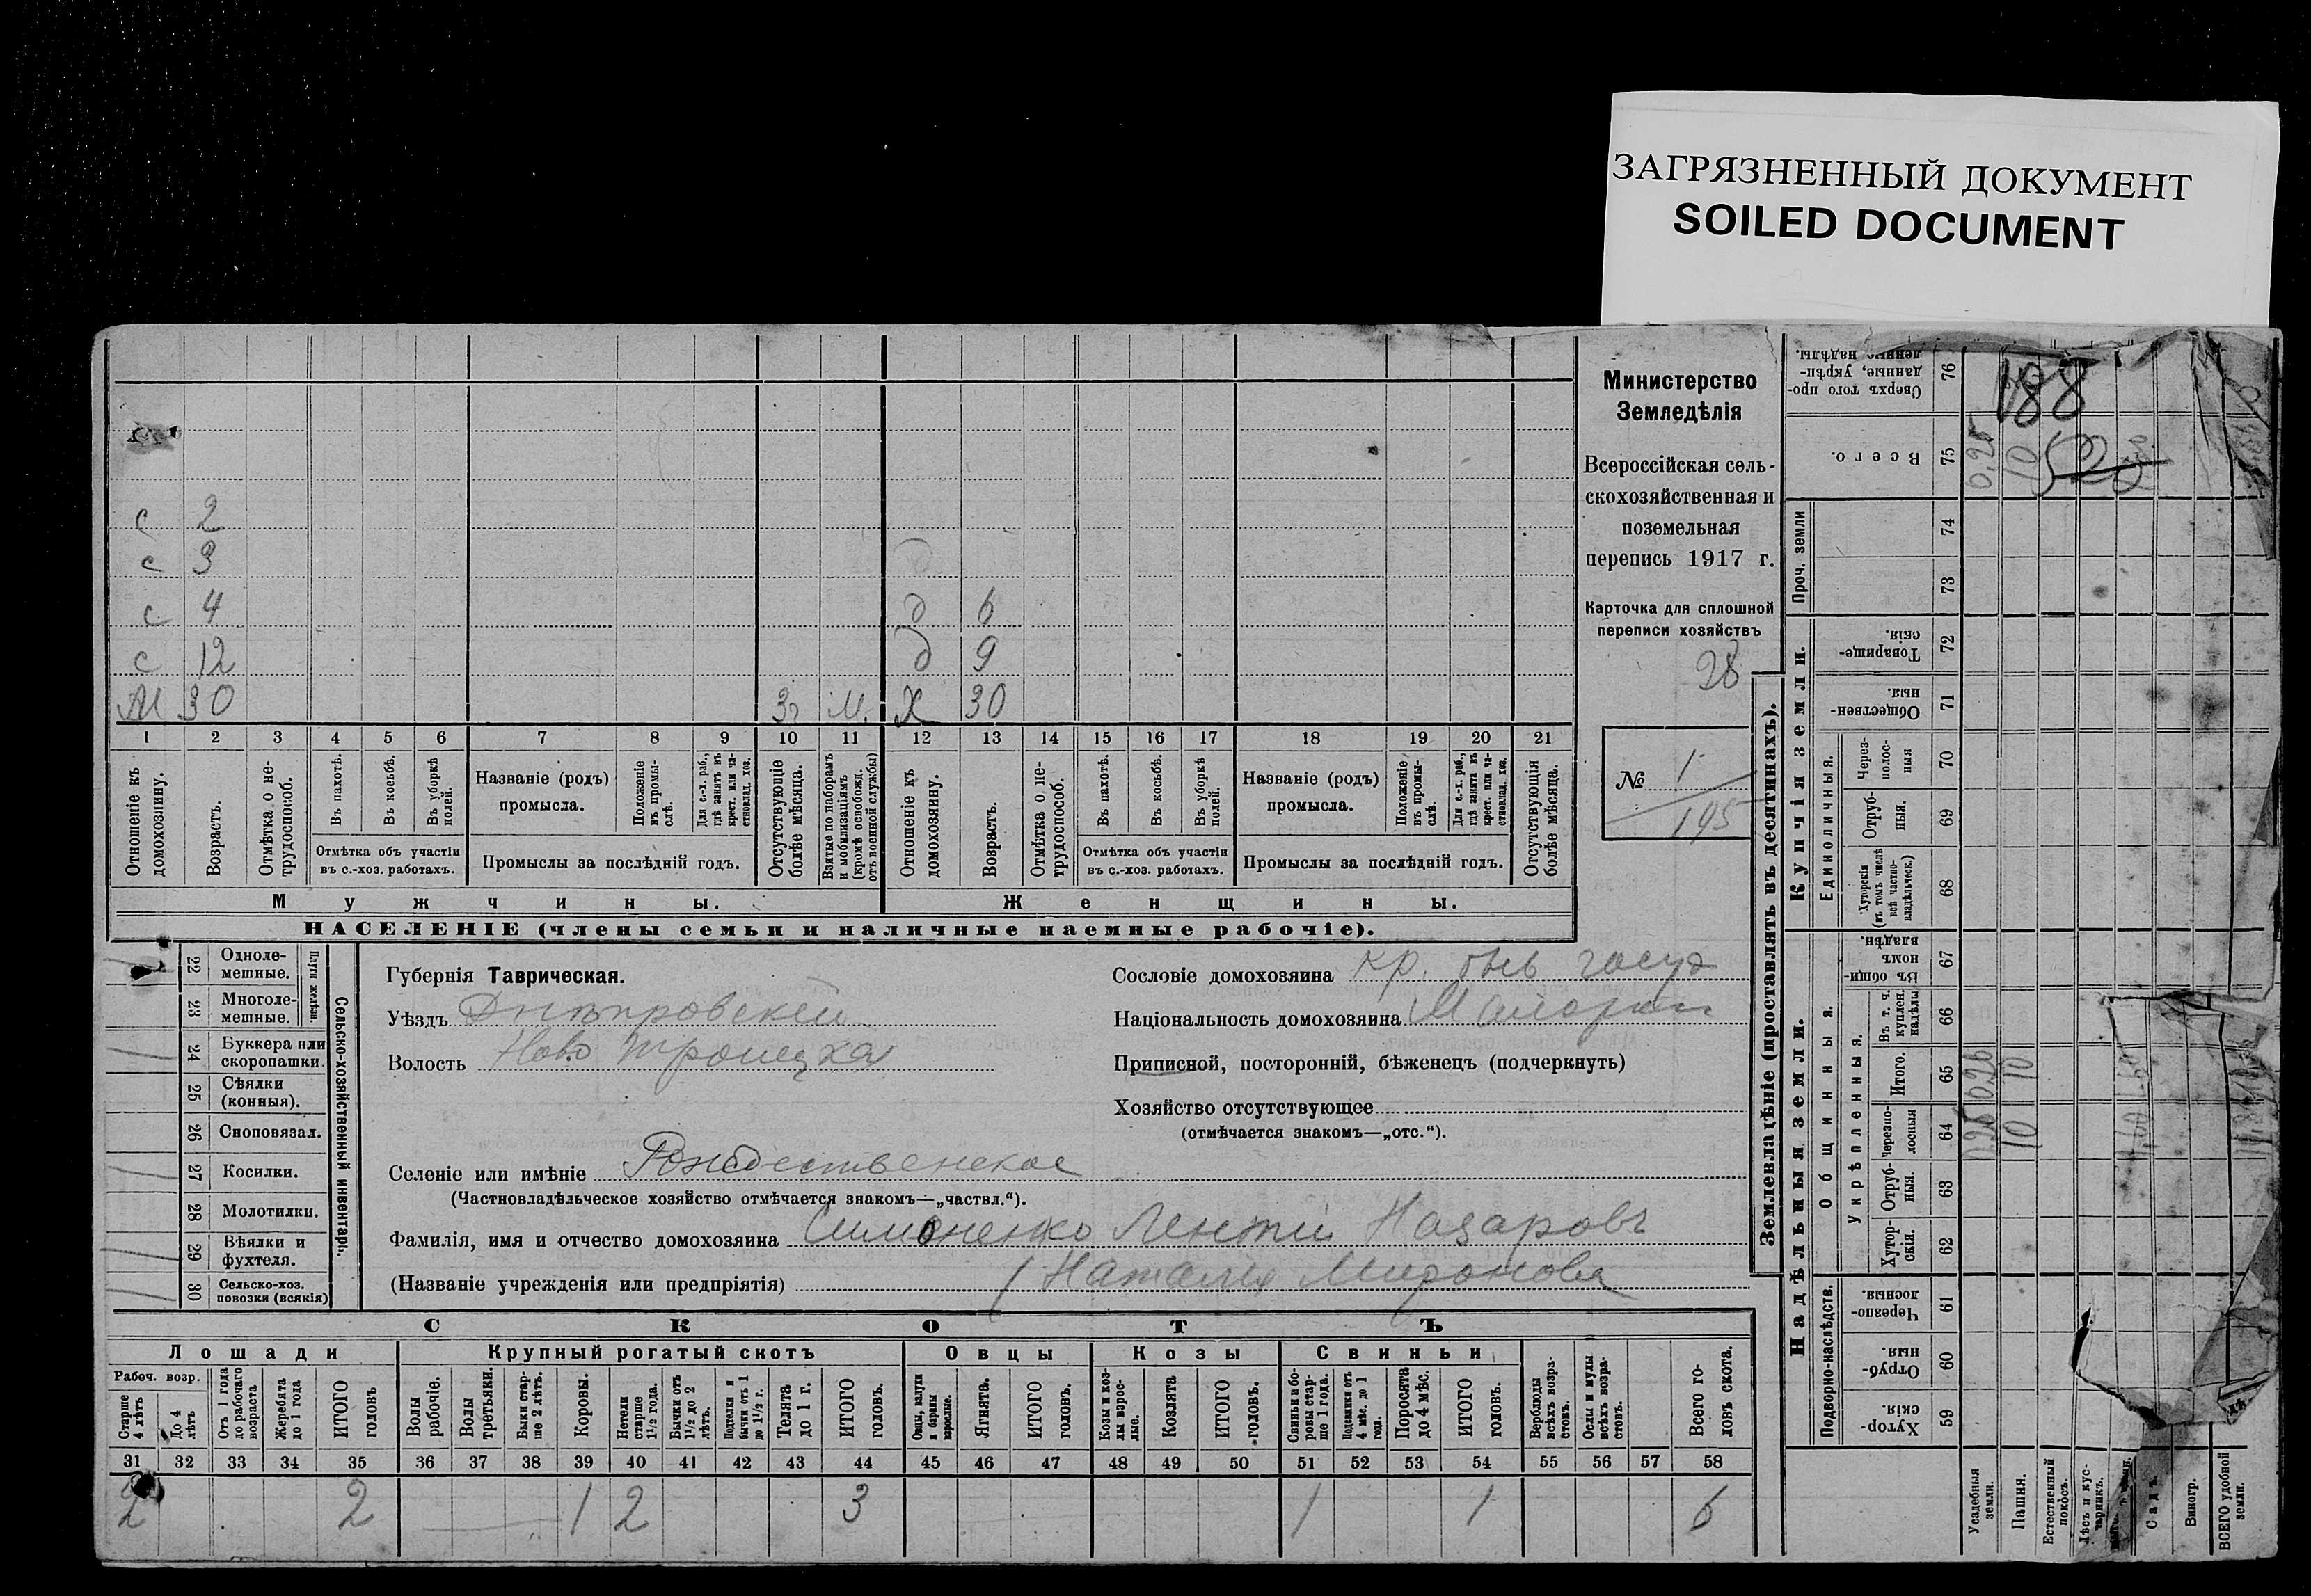 ЗАГРЯЗНЕННЫЙ ДОКУМЕНТ
SOILED DOCUMENT
с 2
с 3
с 4 д 6
с 12 д 9
М 30 3г М. Х 30
1 2 3 4 5 6 7 8 9 10 11 12 13 14 15 16 17 18 19 20 21
Отношеніе къ домохозяину.
Возрастъ.
Отмѣтка о нетрудоспособ.
Въ пахотѣ.
Въ косьбѣ.
Въ уборкѣ полей.
Отмѣтка объ участіи въ с.-хоз. работахъ.
Названіе (родъ) промысла.
Положеніе въ промыслѣ.
Для с.-х. раб., гдѣ занятъ въ крест. или частновлад. хоз.
Промыслы за послѣдній годъ.
Отсутствующіе болѣе мѣсяца.
Взятые по наборамъ и мобилизаціямъ (кромѣ освобожд. отъ военной службы)
Отношеніе къ домохозяину.
Возрастъ.
Отмѣтка о нетрудоспособ.
Въ пахотѣ.
Въ косьбѣ.
Въ уборкѣ полей.
Отмѣтка объ участіи въ с.-хоз. работахъ.
Названіе (родъ) промысла.
Положеніе въ промыслѣ.
Для с.-х. раб., гдѣ занята въ крест. или частновлад. хоз.
Промыслы за послѣдній годъ.
Отсутствующія болѣе мѣсяца.
Мужчины. Женщины.
НАСЕЛЕНІЕ (члены семьи и наличные наемные рабочіе).
Министерство
Земледѣлія
Всероссійская сель-
скохозяйственная и
поземельная
перепись 1917 г.
Карточка для сплошной
переписи хозяйствъ
28
№ 1
195
Сельско-хозяйственный инвентарь.
Плуги желѣзн.
22 Одноле-мешные.
23 Многоле-мешные.
24 Буккера или скоропашки.
25 Сѣялки (конныя).
26 Сноповязал.
27 Косилки.
28 Молотилки.
29 Вѣялки и фухтеля.
30 Сельско-хоз. повозки (всякія)
Губернія Таврическая.
Уѣздъ Днѣпровскій
Волость Ново Троицкая
Селеніе или имѣніе Рождественское
(Частновладѣльческое хозяйство отмѣчается знакомъ—„частвл.“).
Фамилія, имя и отчество домохозяина Симоненко Лентій Назаровъ
(Названіе учрежденія или предпріятія) Наталія Миронова
Сословіе домохозяина кр. быв госуд
Національность домохозяина Малорос
Приписной, посторонній, бѣженецъ (подчеркнуть)
Хозяйство отсутствующее
(отмѣчается знакомъ—„отс.“).
СКОТЪ
Лошади Крупный рогатый скотъ Овцы Козы Свиньи
Рабоч. возр.
Старше 4 лѣтъ
До 4 лѣтъ
Отъ 1 года до рабочаго возраста
Жеребята до 1 года
ИТОГО головъ
Волы рабочіе.
Волы третьяки.
Быки старше 2 лѣтъ.
Коровы.
Нетели старше 1½ года.
Бычки отъ 1½ до 2 лѣтъ.
Подтелки и бычки отъ 1 до 1½ г.
Телята до 1 г.
ИТОГО головъ.
Овцы, валухи и бараны взрослые.
Ягнята.
ИТОГО головъ.
Козы и козлы взрослые.
Козлята
ИТОГО головъ.
Свиньи и боровы старше 1 года.
Подсвинки отъ 4 мѣс. до 1 года.
Поросята до 4 мѣс.
ИТОГО головъ.
Верблюды всѣхъ возрастовъ.
Ослы и мулы всѣхъ возрастовъ.
Всего головъ скота.
31 32 33 34 35 36 37 38 39 40 41 42 43 44 45 46 47 48 49 50 51 52 53 54 55 56 57 58
2 2 1 2 3 1 1 6
Землевладѣніе (проставлять въ десятинахъ).
Купчія земли.
Надѣльныя земли.
Сверхъ того проданные, укрѣпленные надѣлы. 76
188
Всего. 75 0,25 10
Проч. земли 74
73
Товарищескія. 72
Общественныя. 71
Единоличныя.
Черезполосныя 70
Отрубныя. 69
Хуторскія (въ томъ числѣ всѣ частновладѣльческ.) 68
Общинныя.
Въ общиномъ владѣн. 67
Укрѣпленныя.
Въ т. ч. куплен. надѣлы 66
Итого. 65 0,25 10
Черезполосныя 64 0,25 10
Отрубныя. 63
Хуторскія. 62
Подворно-наслѣдств.
Черезполосныя. 61
Отрубныя. 60
Хуторскія. 59
Усадебныя земли.
Пашня.
Естественный покосъ.
Лѣсъ и кустарникъ.
Садъ.
Виногр.
ВСЕГО удобной земли.